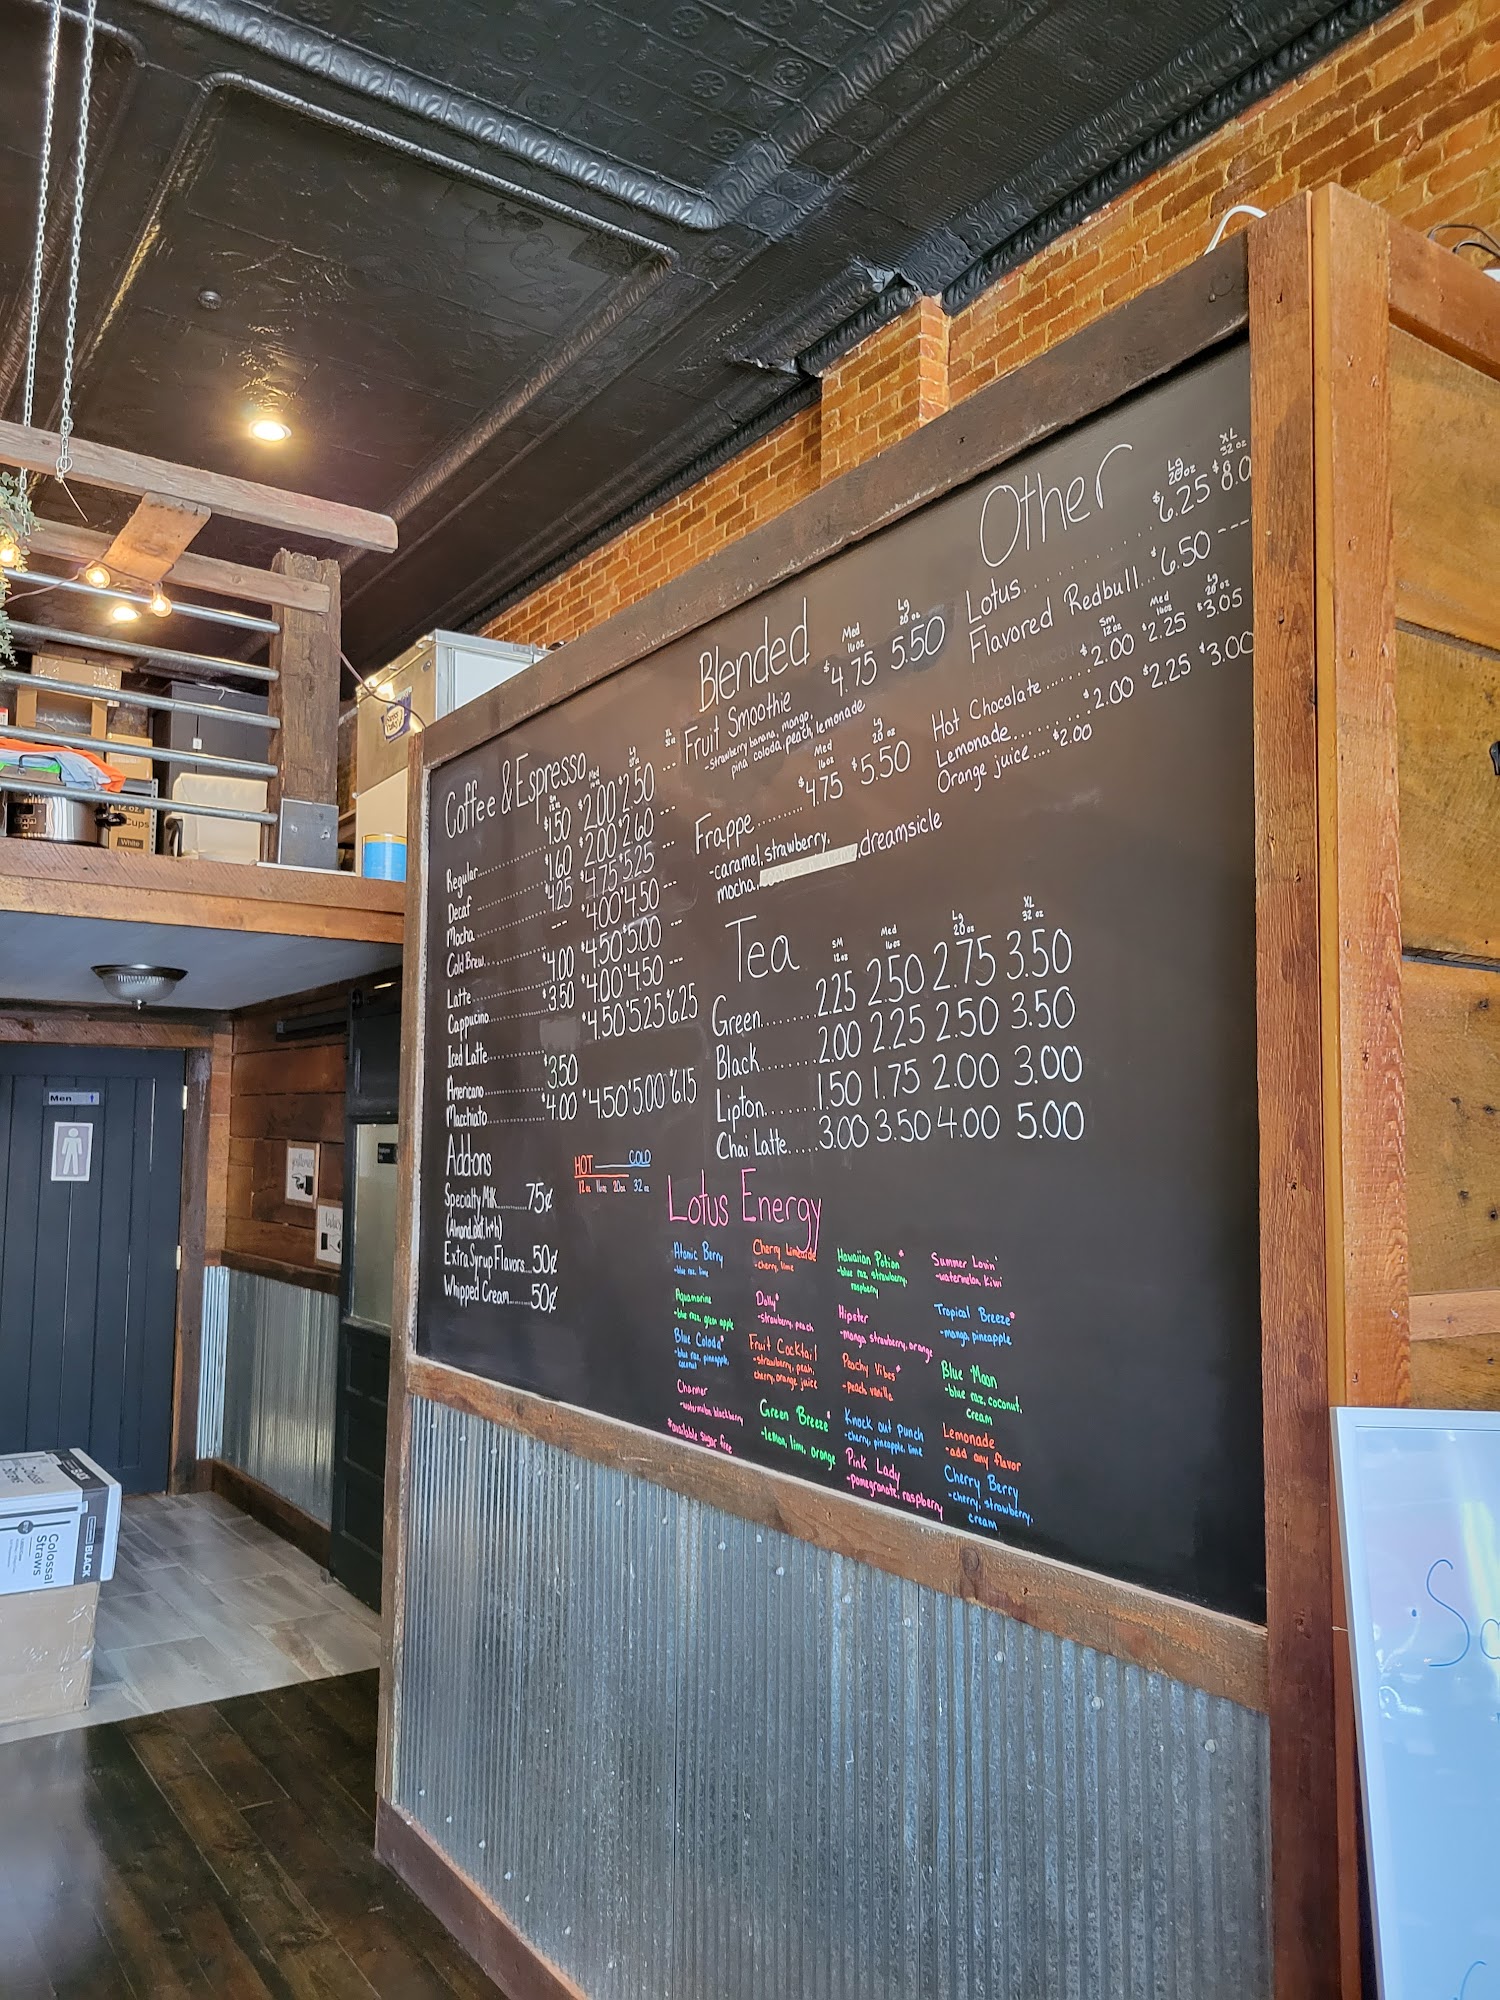 Coffee & Espresso
Sm 12 oz Med 16 oz Lg 20 oz XL 32 oz
Regular $1.50 $2.00 $2.50 ---
Decaf $1.60 $2.00 $2.60 ---
Mocha $4.25 $4.75 $5.25
Cold Brew --- $4.00 $4.50 ---
Latte $4.00 $4.50 $5.00
Cappucino $3.50 $4.00 $4.50 ---
Iced Latte $4.50 $5.25 $6.25
Americano $3.50
Macchiato $4.00 $4.50 $5.00 $6.15
Add-ons
Specialty Milk 75¢
(Almond, oat, h+h)
Extra Syrup Flavors 50¢
Whipped Cream 50¢
HOT COLD
12 oz 16 oz 20 oz 32 oz
Blended
Med 16 oz Lg 20 oz
Fruit Smoothie $4.75 5.50
-strawberry banana, mango,
pina colada, peach, lemonade
Med 16 oz Lg 20 oz
Frappe $4.75 $5.50
-caramel, strawberry,
mocha, dreamsicle
Other
Lg 20 oz XL 32 oz
Lotus $6.25 $8.0
Flavored Redbull $6.50 ---
Sm 12 oz Med 16 oz Lg 20 oz
Hot Chocolate $2.00 $2.25 $3.05
Lemonade $2.00 $2.25 $3.00
Orange juice $2.00
Tea
SM 12 oz Med 16 oz Lg 20 oz XL 32 oz
Green 2.25 2.50 2.75 3.50
Black 2.00 2.25 2.50 3.50
Lipton 1.50 1.75 2.00 3.00
Chai Latte 3.00 3.50 4.00 5.00
Lotus Energy
Atomic Berry
-blue raz, lime
Aquamarine
-blue raz, green apple
Blue Colada*
-blue raz, pineapple,
coconut
Charmer
-watermelon, blackberry
*available sugar free
Cherry Limeade
-cherry, lime
Dolly*
-strawberry, peach
Fruit Cocktail
-strawberry, peah,
cherry, orange juice
Green Breeze*
-lemon, lime, orange
Hawaiian Potion*
-blue raz, strawberry,
raspberry
Hipster
-mango, strawberry, orange
Peachy Vibes*
-peach vanilla
Knock out punch
-cherry, pineapple, lime
Pink Lady
-pomegranate, raspberry
Summer Lovin'
-watermelon, Kiwi
Tropical Breeze*
-mango, pineapple
Blue Moon
-blue raz, coconut,
cream
Lemonade
-add any flavor
Cherry Berry
-cherry, strawberry,
cream
Men
12 oz.
Cups
White
Colossal
Straws
BLACK
Sa